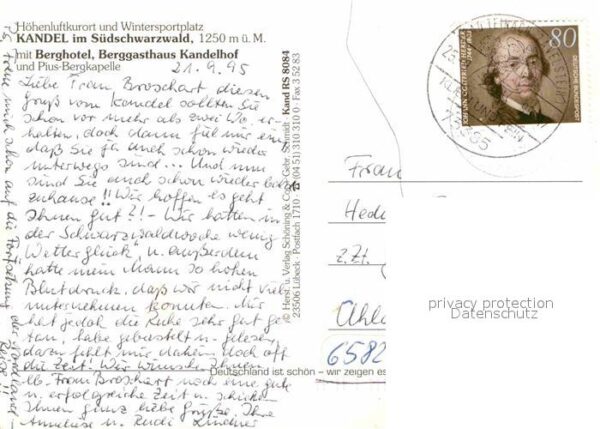 Höhenluftkurort und Wintersportplatz
KANDEL im Südschwarzwald, 1250 m ü. M.
mit Berghotel, Berggasthaus Kandelhof
und Pius-Bergkapelle
21.9.95
Liebe Frau Broschart, diesen
Gruß vom Kandel sollten Sie
schon vor mehr als zwei Wo. er-
halten, doch dann fiel mir ein
daß Sie ja auch schon wieder
unterwegs sind... Und nun
sind Sie auch schon wieder bald
zuhause!! Wir hoffen es geht
Ihnen gut?! - Wir hatten in
der Schwarzwaldwoche wenig
"Wetterglück" u. außerdem
hatte mein Mann so hohen
Blutdruck, daß wir nicht viel
unternehmen konnten. Mir
hat jedoch die Ruhe sehr gut ge-
tan, habe gebastelt u. gelesen,
dazu fehlt mir daheim doch oft
die Zeit! Wir wünschen Ihnen
lb. Frau Broschart noch eine gute
u. erfolgreiche Zeit u. schicken
Ihnen ganz liebe Grüße. Ihre
Anneliese u. Rudi
PS Freue mich schon auf die Fortsetzung der
Reise!!
© Herst. u. Verlag Schöning & Co + Gebr. Schmidt · Kand RS 8084
23506 Lübeck · Postfach 1710 · ☎ (04 51) 310 310 0 · Fax 3 52 83
Deutschland ist schön – wir zeigen es
80
JOHANN GOTTFRIED HERDER
DEUTSCHE BUNDESPOST
Frau
Hede
z.Zt.
Ahla
6582
privacy protection
Datenschutz